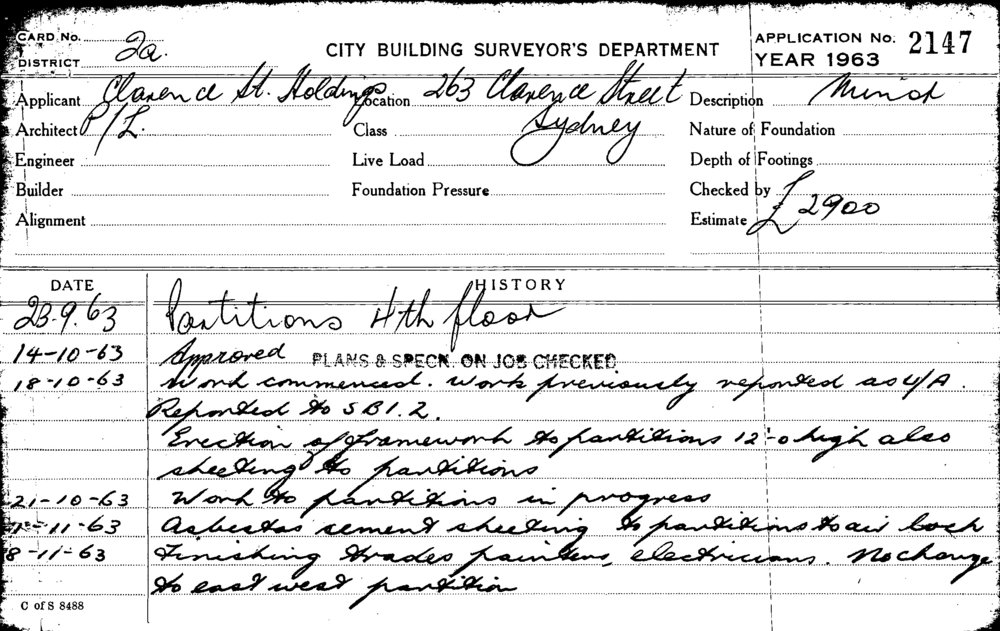 CARD No. 2a. CITY BUILDING SURVEYOR'S DEPARTMENT APPLICATION No. 2147
DISTRICT YEAR 1963
Applicant Clarence St. Holdings Location 263 Clarence Street Description Minor
Architect P/L. Class Sydney Nature of Foundation
Engineer Live Load Depth of Footings
Builder Foundation Pressure Checked by
Alignment Estimate £2900
DATE HISTORY
23.9.63 Partitions 4th floor
14-10-63 Approved PLANS & SPECN. ON JOB CHECKED
18-10-63 Work commenced. Work previously reported as U/A.
Reported to SBI.2.
Erection of framework to partitions 12'-0 high also
sheeting to partitions
21-10-63 Work to partitions in progress
-11-63 Asbestos cement sheeting to partitions to air lock
8-11-63 Finishing trades painters, electricians. No change
to east west partition
C of S 8488